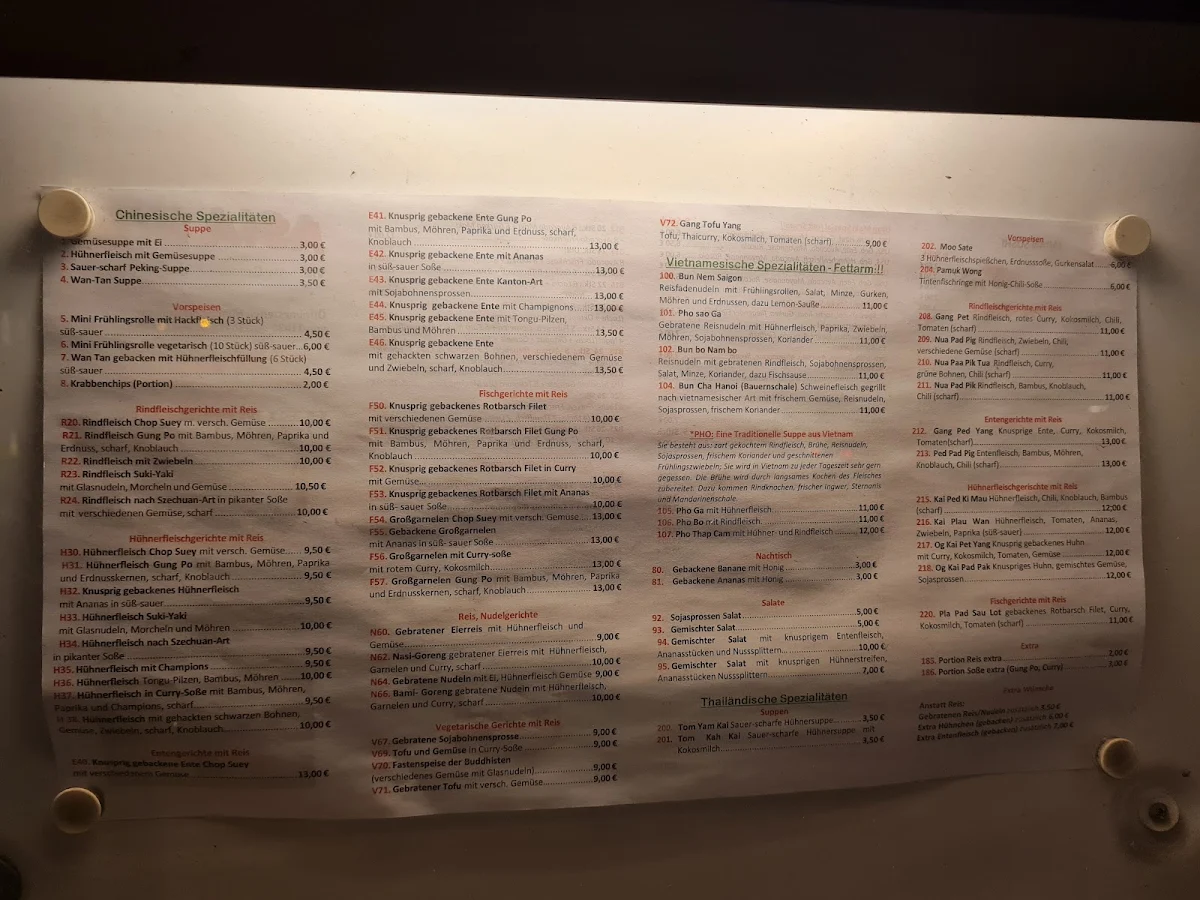 Chinesische Spezialitäten
Suppe
1. Gemüsesuppe mit Ei 3,00 €
2. Hühnerfleisch mit Gemüsesuppe 3,00 €
3. Sauer-scharf Peking-Suppe 3,00 €
4. Wan-Tan Suppe 3,50 €
Vorspeisen
5. Mini Frühlingsrolle mit Hackfleisch (3 Stück)
süß-sauer 4,50 €
6. Mini Frühlingsrolle vegetarisch (10 Stück) süß-sauer 6,00 €
7. Wan Tan gebacken mit Hühnerfleischfüllung (6 Stück)
süß-sauer 4,50 €
8. Krabbenchips (Portion) 2,00 €
Rindfleischgerichte mit Reis
R20. Rindfleisch Chop Suey m. versch. Gemüse 10,00 €
R21. Rindfleisch Gung Po mit Bambus, Möhren, Paprika und
Erdnuss, scharf, Knoblauch 10,00 €
R22. Rindfleisch mit Zwiebeln 10,00 €
R23. Rindfleisch Suki-Yaki
mit Glasnudeln, Morcheln und Gemüse 10,50 €
R24. Rindfleisch nach Szechuan-Art in pikanter Soße
mit verschiedenen Gemüse, scharf 10,00 €
Hühnerfleischgerichte mit Reis
H30. Hühnerfleisch Chop Suey mit versch. Gemüse 9,50 €
H31. Hühnerfleisch Gung Po mit Bambus, Möhren, Paprika
und Erdnusskernen, scharf, Knoblauch 9,50 €
H32. Knusprig gebackenes Hühnerfleisch
mit Ananas in süß-sauer 9,50 €
H33. Hühnerfleisch Suki-Yaki
mit Glasnudeln, Morcheln und Möhren 10,00 €
H34. Hühnerfleisch nach Szechuan-Art
in pikanter Soße 9,50 €
H35. Hühnerfleisch mit Champions 9,50 €
H36. Hühnerfleisch Tongu-Pilzen, Bambus, Möhren 10,00 €
H37. Hühnerfleisch in Curry-Soße mit Bambus, Möhren,
Paprika und Champions, scharf 9,50 €
H 38. Hühnerfleisch mit gehackten schwarzen Bohnen,
Gemüse, Zwiebeln, scharf, Knoblauch 10,00 €
Entengerichte mit Reis
E40. Knusprig gebackene Ente Chop Suey
mit verschiedenem Gemüse 13,00 €
E41. Knusprig gebackene Ente Gung Po
mit Bambus, Möhren, Paprika und Erdnuss, scharf,
Knoblauch 13,00 €
E42. Knusprig gebackene Ente mit Ananas
in süß-sauer Soße 13,00 €
E43. Knusprig gebackene Ente Kanton-Art
mit Sojabohnensprossen 13,00 €
E44. Knusprig gebackene Ente mit Champignons 13,00 €
E45. Knusprig gebackene Ente mit Tongu-Pilzen,
Bambus und Möhren 13,50 €
E46. Knusprig gebackene Ente
mit gehackten schwarzen Bohnen, verschiedenem Gemüse
und Zwiebeln, scharf, Knoblauch 13,50 €
Fischgerichte mit Reis
F50. Knusprig gebackenes Rotbarsch Filet
mit verschiedenen Gemüse 10,00 €
F51. Knusprig gebackenes Rotbarsch Filet Gung Po
mit Bambus, Möhren, Paprika und Erdnuss, scharf,
Knoblauch 10,00 €
F52. Knusprig gebackenes Rotbarsch Filet in Curry
mit Gemüse 10,00 €
F53. Knusprig gebackenes Rotbarsch Filet mit Ananas
in süß- sauer Soße 10,00 €
F54. Großgarnelen Chop Suey mit versch. Gemüse 13,00 €
F55. Gebackene Großgarnelen
mit Ananas in süß- sauer Soße 13,00 €
F56. Großgarnelen mit Curry-soße
mit rotem Curry, Kokosmilch 13,00 €
F57. Großgarnelen Gung Po mit Bambus, Möhren, Paprika
und Erdnusskernen, scharf, Knoblauch 13,00 €
Reis, Nudelgerichte
N60. Gebratener Eierreis mit Hühnerfleisch und
Gemüse 9,00 €
N62. Nasi-Goreng gebratener Eierreis mit Hühnerfleisch,
Garnelen und Curry, scharf 10,00 €
N64. Gebratene Nudeln mit Ei, Hühnerfleisch Gemüse 9,00 €
N66. Bami- Goreng gebratene Nudeln mit Hühnerfleisch,
Garnelen und Curry, scharf 10,00 €
Vegetarische Gerichte mit Reis
V67. Gebratene Sojabohnensprosse 9,00 €
V69. Tofu und Gemüse in Curry-Soße 9,00 €
V70. Fastenspeise der Buddhisten
(verschiedenes Gemüse mit Glasnudeln) 9,00 €
V71. Gebratener Tofu mit versch. Gemüse 9,00 €
V72. Gang Tofu Yang
Tofu, Thaicurry, Kokosmilch, Tomaten (scharf) 9,00 €
Vietnamesische Spezialitäten - Fettarm!!
100. Bun Nem Saigon
Reisfadenudeln mit Frühlingsrollen, Salat, Minze, Gurken,
Möhren und Erdnussen, dazu Lemon-Sauße 11,00 €
101. Pho sao Ga
Gebratene Reisnudeln mit Hühnerfleisch, Paprika, Zwiebeln,
Möhren, Sojabohnensprossen, Koriander 11,00 €
102. Bun bo Nam bo
Reisnudeln mit gebratenen Rindfleisch, Sojabohnensprossen,
Salat, Minze, Koriander, dazu Fischsause 11,00 €
104. Bun Cha Hanoi (Bauernschale) Schweinefleisch gegrillt
nach vietnamesischer Art mit frischem Gemüse, Reisnudeln,
Sojasprossen, frischem Koriander 11,00 €
*PHO: Eine Traditionelle Suppe aus Vietnam
Sie besteht aus: zart gekochtem Rindfleisch, Brühe, Reisnudeln,
Sojasprossen, frischem Koriander und geschnittenen
Frühlingszwiebeln; Sie wird in Vietnam zu jeder Tageszeit sehr gern
gegessen. Die Brühe wird durch langsames Kochen des Fleisches
zubereitet. Dazu kommen Rindknochen, frischer Ingwer, Sternanis
und Mandarinenschale.
105. Pho Ga mit Hühnerfleisch 11,00 €
106. Pho Bo mit Rindfleisch 11,00 €
107. Pho Thap Cam mit Hühner- und Rindfleisch 12,00 €
Nachtisch
80. Gebackene Banane mit Honig 3,00 €
81. Gebackene Ananas mit Honig 3,00 €
Salate
92. Sojasprossen Salat 5,00 €
93. Gemischter Salat 5,00 €
94. Gemischter Salat mit knusprigem Entenfleisch,
Ananasstücken und Nussplittern 10,00 €
95. Gemischter Salat mit knusprigen Hühnerstreifen,
Ananasstücken Nussplittern 7,00 €
Thailändische Spezialitäten
Suppen
200. Tom Yam Kai Sauer-scharfe Hühnersuppe 3,50 €
201. Tom Kah Kai Sauer-scharfe Hühnersuppe mit
Kokosmilch 3,50 €
Vorspeisen
202. Moo Sate
3 Hühnerfleischspießchen, Erdnusssoße, Gurkensalat 6,00 €
204. Pamuk Wong
Tintenfischringe mit Honig-Chili-Soße 6,00 €
Rindfleischgerichte mit Reis
208. Gang Pet Rindfleisch, rotes Curry, Kokosmilch, Chili,
Tomaten (scharf) 11,00 €
209. Nua Pad Pig Rindfleisch, Zwiebeln, Chili,
verschiedene Gemüse (scharf) 11,00 €
210. Nua Paa Pik Tua Rindfleisch, Curry,
grüne Bohnen, Chili (scharf) 11,00 €
211. Nua Pad Pik Rindfleisch, Bambus, Knoblauch,
Chili (scharf) 11,00 €
Entengerichte mit Reis
212. Gang Ped Yang Knusprige Ente, Curry, Kokosmilch,
Tomaten(scharf) 13,00 €
213. Ped Pad Pig Entenfleisch, Bambus, Möhren,
Knoblauch, Chili (scharf) 13,00 €
Hühnerfleischgerichte mit Reis
215. Kai Ped Ki Mau Hühnerfleisch, Chili, Knoblauch, Bambus
(scharf) 12,00 €
216. Kai Plau Wan Hühnerfleisch, Tomaten, Ananas,
Zwiebeln, Paprika (süß-sauer) 12,00 €
217. Og Kai Pet Yang Knusprig gebackenes Huhn
mit Curry, Kokosmilch, Tomaten, Gemüse 12,00 €
218. Og Kai Pad Pak Knuspriges Huhn, gemischtes Gemüse,
Sojasprossen 12,00 €
Fischgerichte mit Reis
220. Pla Pad Sau Lot gebackenes Rotbarsch Filet, Curry,
Kokosmilch, Tomaten (scharf) 11,00 €
Extra
185. Portion Reis extra 2,00 €
186. Portion Soße extra (Gung Po, Curry) 3,00 €
Extra Wünsche
Anstatt Reis:
Gebratenen Reis/Nudeln zusätzlich 3,50 €
Extra Hühnchen (gebacken) zusätzlich 6,00 €
Extra Entenfleisch (gebacken) zusätzlich 7,00 €